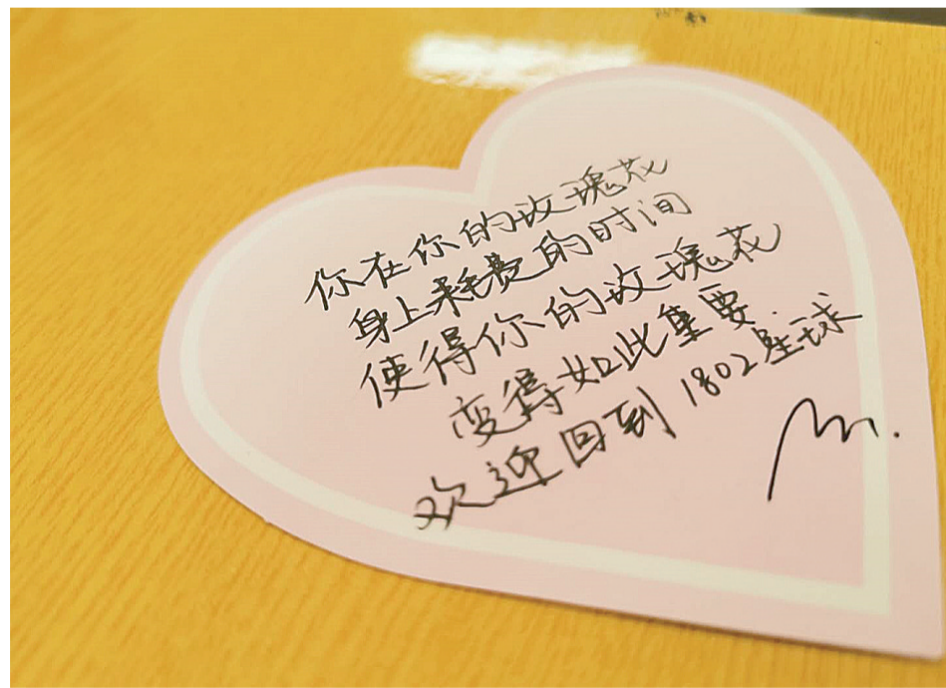 你在你的玫瑰花
身上耗费的时间
使得你的玫瑰花
变得如此重要.
欢迎回到1802星球
m.